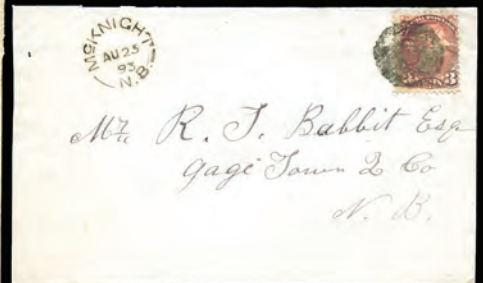 McKNIGHT
AU 25
93
N.B.
3
Mr R. T. Babbit Esq
Gage Town Q Co
N. B.